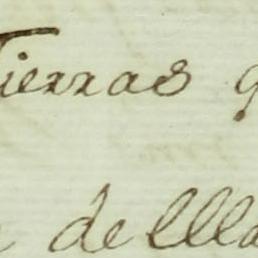 Tierras q
de llla